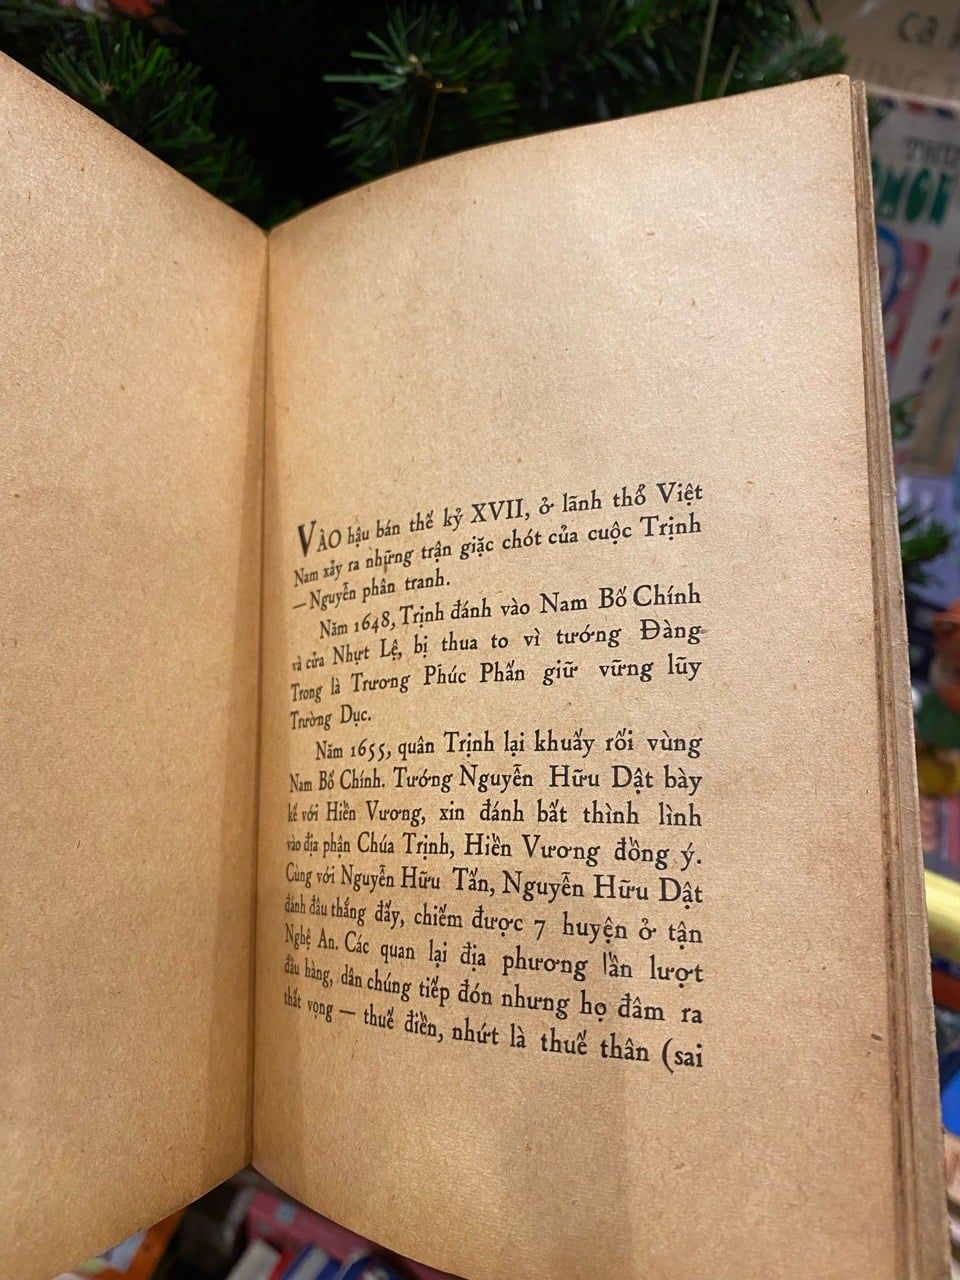 ca
THƯ
VÀO hậu bán thế kỷ XVII, ở lãnh thổ Việt
Nam xảy ra những trận giặc chót của cuộc Trịnh
— Nguyễn phân tranh.
Năm 1648, Trịnh đánh vào Nam Bố Chính
và cửa Nhựt Lệ, bị thua to vì tướng Đàng
Trong là Trương Phúc Phấn giữ vững lũy
Trường Dục.
Năm 1655, quân Trịnh lại khuấy rối vùng
Nam Bố Chính. Tướng Nguyễn Hữu Dật bày
kế với Hiền Vương, xin đánh bất thình lình
vào địa phận Chúa Trịnh, Hiền Vương đồng ý.
Cùng với Nguyễn Hữu Tấn, Nguyễn Hữu Dật
đánh đâu thắng đấy, chiếm được 7 huyện ở tận
Nghệ An. Các quan lại địa phương lần lượt
đầu hàng, dân chúng tiếp đón nhưng họ đâm ra
thất vọng — thuế điền, nhứt là thuế thân (sai